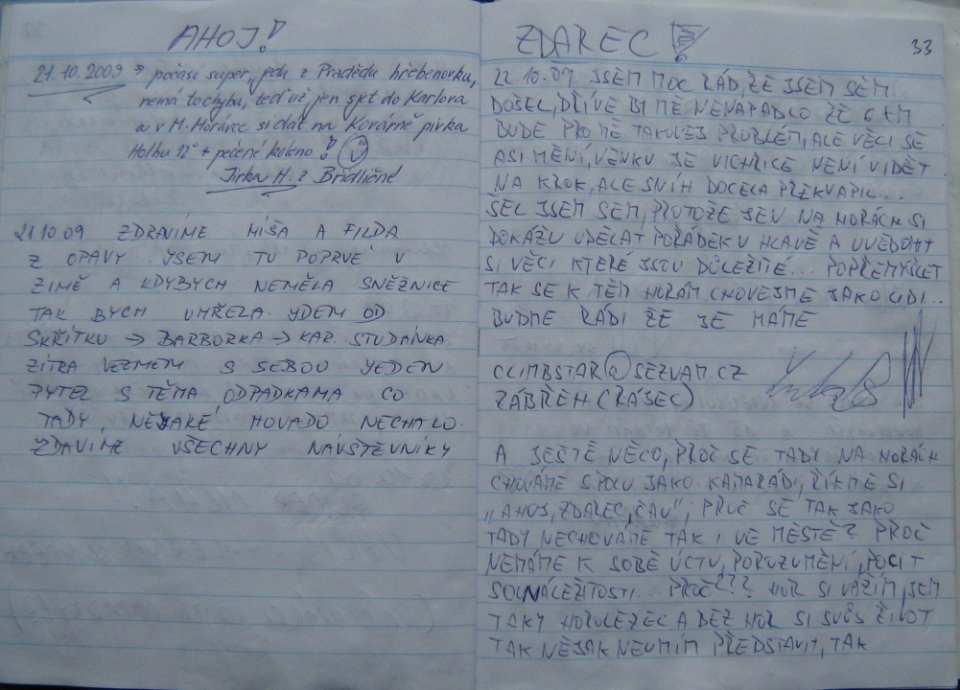 AHOJ!
21.10.2009 → počasí super, jedu z Pradědu hřebenovku,
nemá to chybu, teď už jen sjet do Karlova
a v M. Morávce si dát na Kovárně pivka
Holbu 12° + pečené koleno!
Jirka H. z Břidličné
21.10.09 ZDRAVÍME MIŠA A FILDA
Z OPAVY. JSEM TU POPRVÉ V
ZIMĚ A KDYBYCH NEMĚLA SNĚŽNICE
TAK BYCH UMŘELA. JDEM OD
SKŘÍTKU → BARBORKA → KAR. STUDÁNKA
ZÍTRA VEZMEM S SEBOU JEDEN
PYTEL S TĚMA ODPADKAMA CO
TADY NĚJAKÉ HOVADO NECHALO.
ZDAVIME VŠECHNY NÁVŠTĚVNÍKY
ZDAREC!
33
22.10.09 JSEM MOC RÁD, ŽE JSEM SEM
DOŠEL, DŘÍVE BI MĚ NENAPADLO ŽE 6 KM
BUDE PRO MĚ TAKOVEJ PROBLÉM, ALE VĚCI SE
ASI MĚNÍ, VENKU JE VICHŘICE NENÍ VIDĚT
NA KROK, ALE SNÍH DOCELA PŘEKVAPIL...
ŠEL JSEM SEM, PROTOŽE JEN NA HORÁCH SI
DOKÁŽU UDĚLAT POŘÁDEK V HLAVĚ A UVĚDOMIT
SI VĚCI KTERÉ JSOU DŮLEŽITÉ... POPŘEMÝŠLET
TAK SE K TĚM HORÁM CHOVEJME JAKO LIDI...
BUĎME RÁDI ŽE JE MÁME
CLIMBSTAR@SEZNAM.CZ
ZÁBŘEH (RÁJEC)
A JEŠTĚ NĚCO, PROČ SE TADY NA HORÁCH
CHOVÁME SPOLU JAKO KAMARÁDI, ŘÍKÁME SI
"AHOJ, ZDAREC, ČAU", PROČ SE TAK JAKO
TADY NECHOVÁME TAK I VE MĚSTĚ? PROČ
NEMÁME K SOBĚ ÚCTU, POROZUMĚNÍ, POCIT
SOUNÁLEŽITOSTI. PROČ??? HOR SI VÁŽÍM, JSEM
TAKY HOROLEZEC A BEZ HOR SI SVŮJ ŽIVOT
TAK NĚJAK NEUMÍM PŘEDSTAVIT, TAK